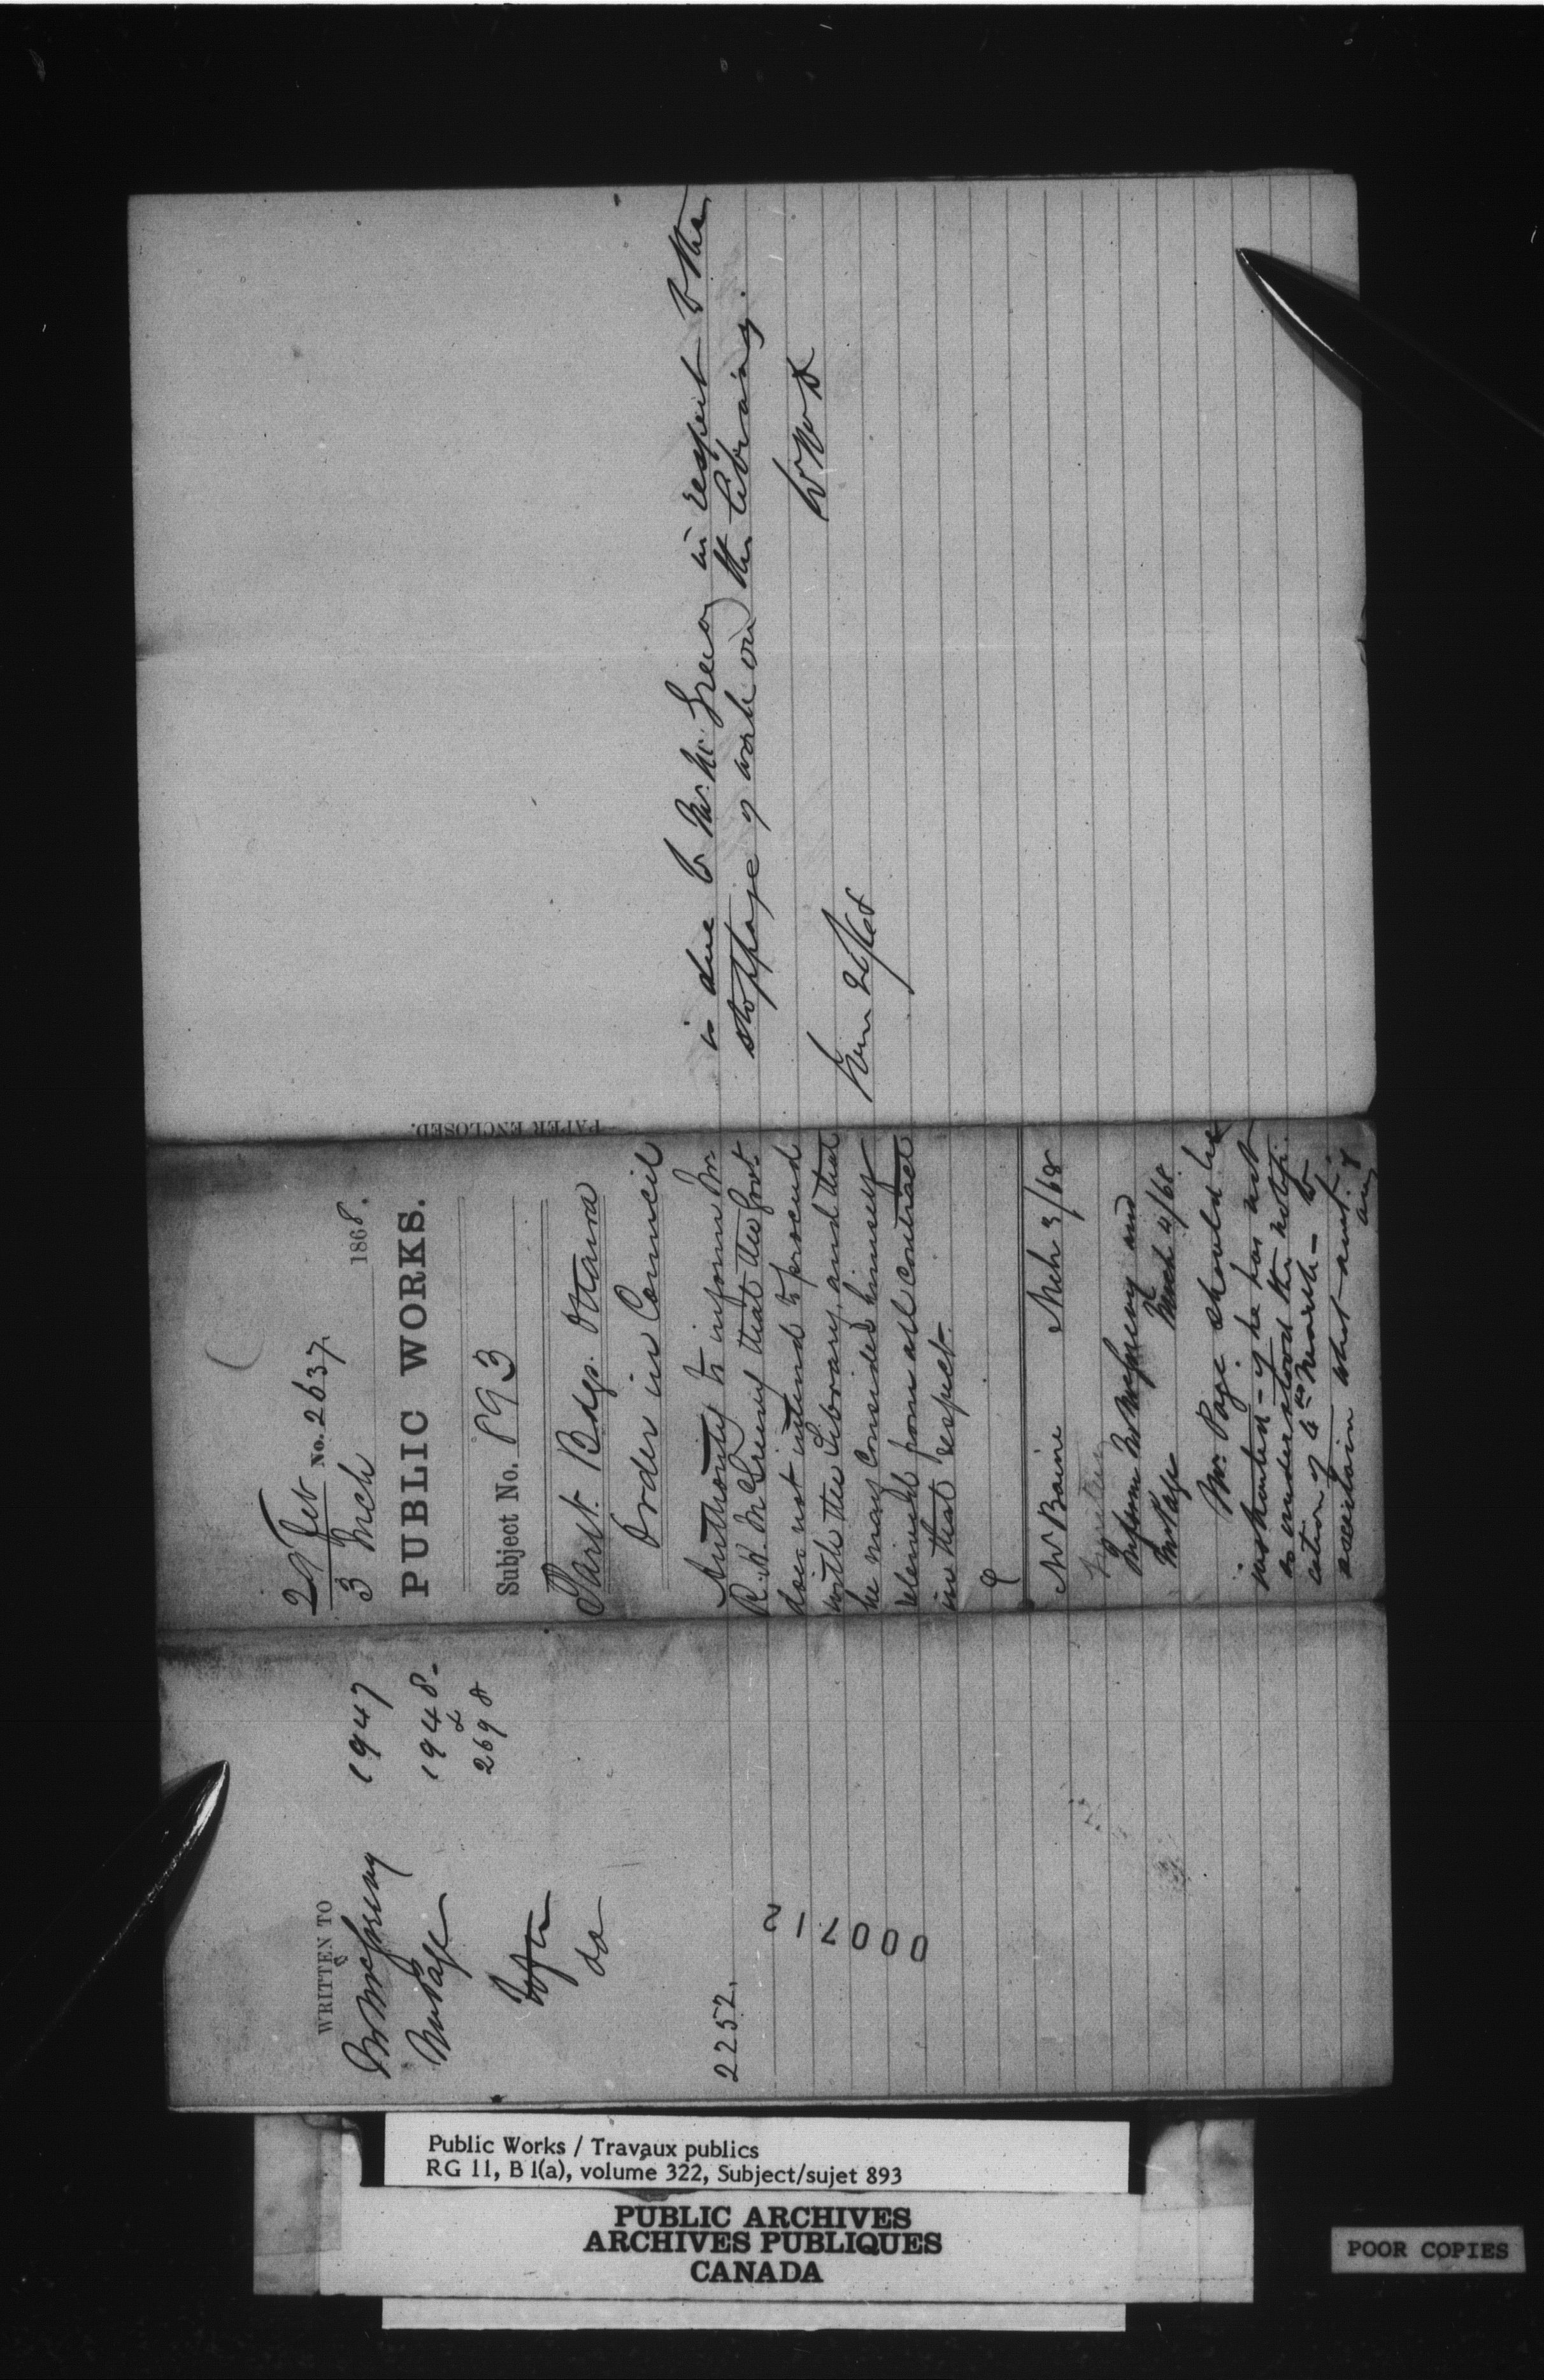 29 Feb
3 Mch
No. 2637
1868.
PUBLIC WORKS.
Subject No. 893
Parlt. Bdgs. Ottawa
Order in Council
Authority to inform Mr.
R. R. McGreevy that the Govt.
does not intend to proceed
with the Library, and that
he may consider himself
relieved from all contract
in that respect.
Mr Baine Mch 3/68
Inform Mr McGreevy and
Mr Page March 4/68
Mr. Page should be
if he has not
so understood the notifi-
cation of 4th March – to
ascertain what amt. if
any
is due to Mr. McGreevy in respect to the
stoppage of work on the library.
PAPER ENCLOSED.
WRITTEN TO
Mr McGreevy 1947
Mr Page 1948-
&
2698
do
2252.
000712
Public Works / Travaux publics
RG 11, B 1(a), volume 322, Subject/sujet 893
PUBLIC ARCHIVES
ARCHIVES PUBLIQUES
CANADA
POOR COPIES